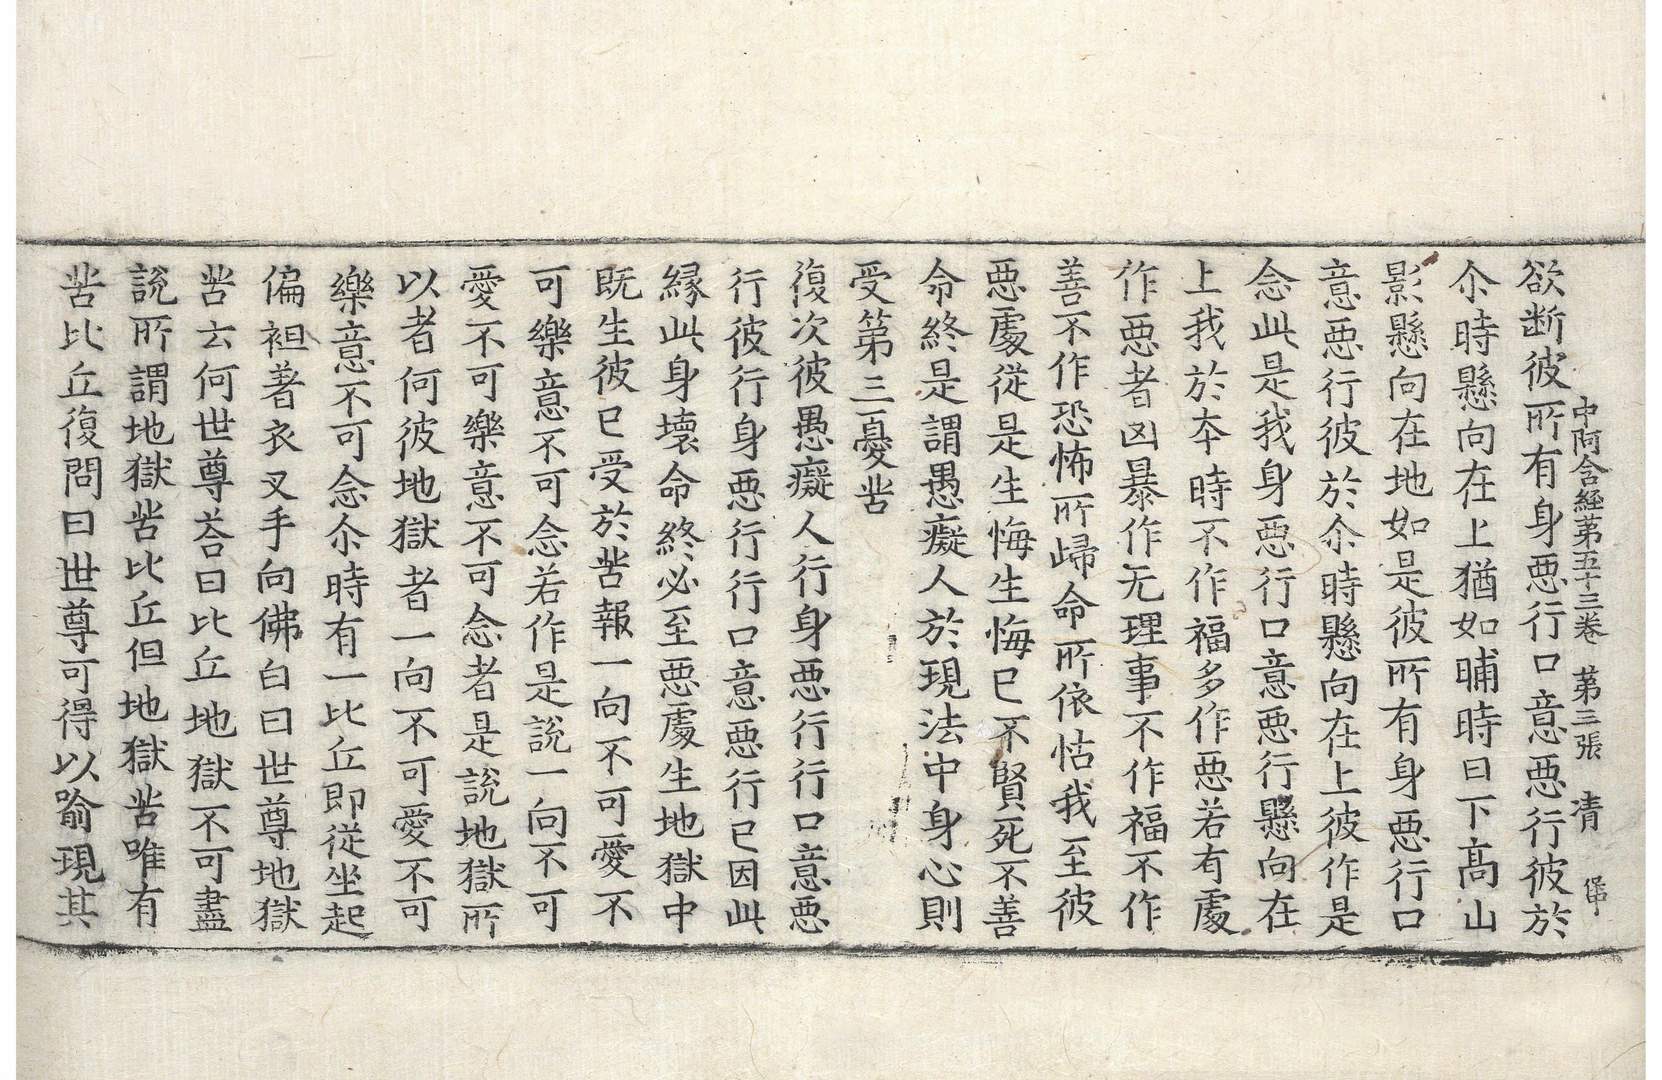 中阿含經第五十三卷　第三張　清
欲断彼所有身惡行口意惡行彼於
尒時懸向在上猶如晡時日下髙山
影懸向在地如是彼所有身惡行口
意惡行彼於尒時懸向在上彼作是
念此是我身惡行口意惡行懸向在
上我於夲時不作福多作惡若有處
作惡者凶暴作无理事不作福不作
善不作恐怖所歸命所依怙我至彼
惡處從是生悔生悔已不賢死不善
命終是謂愚癡人於現法中身心則
受第三憂苦
復次彼愚癡人行身惡行行口意惡
行彼行身惡行行口意惡行已因此
緣此身壞命終必至惡處生地獄中
既生彼已受於苦報一向不可愛不
可樂意不可念若作是說一向不可
愛不可樂意不可念者是說地獄所
以者何彼地獄者一向不可愛不可
樂意不可念尒時有一比丘即從坐起
偏袒著衣叉手向佛白曰世尊地獄
苦云何世尊荅曰比丘地獄不可盡
說所謂地獄苦比丘但地獄苦唯有
苦比丘復問曰世尊可得以喻現其